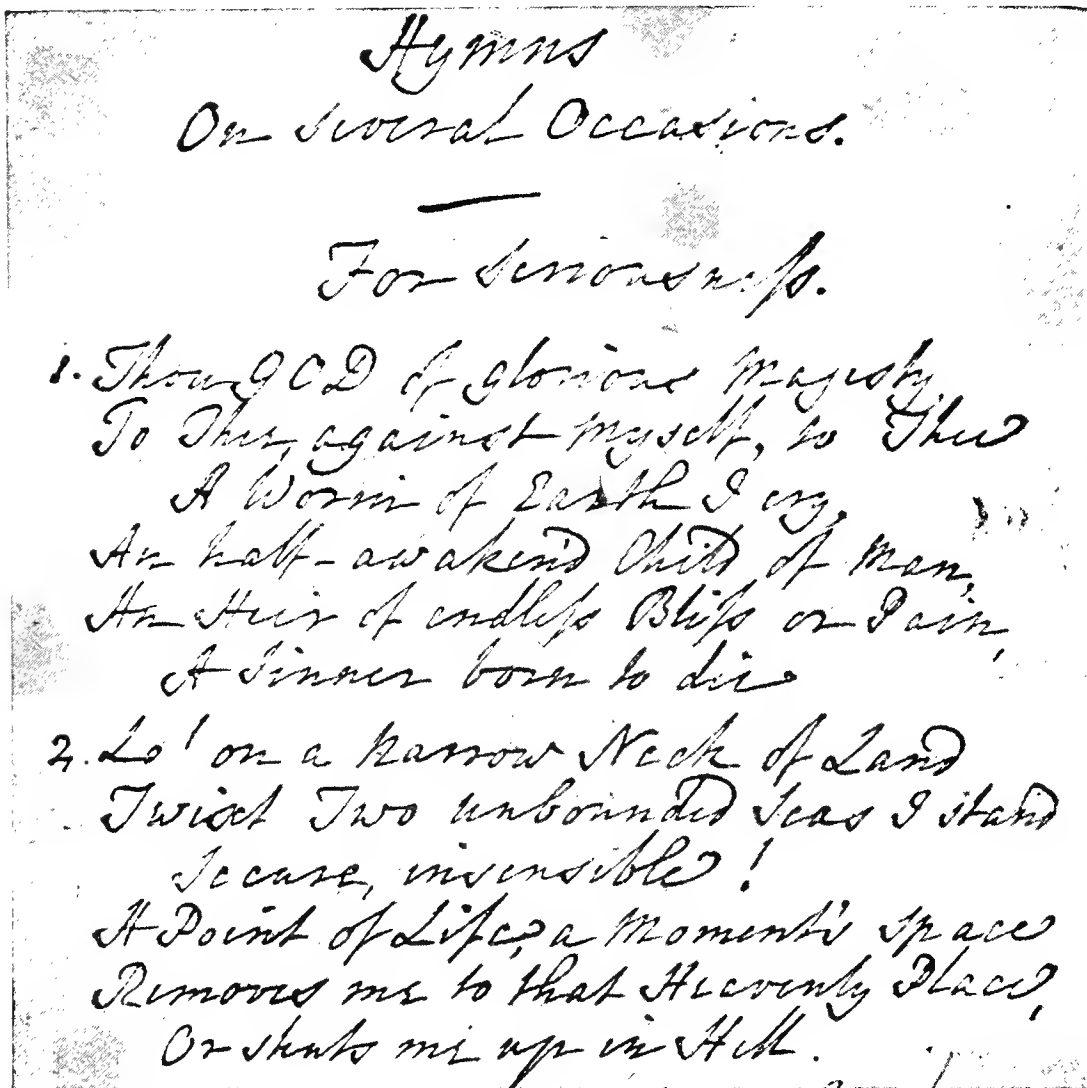 Hymns
On several Occasions.
For Seriousness.
1. Thou GOD of glorious Majesty,
To Thee against myself, to Thee
A Worm of Earth I cry,
An half-awaken'd Child of Man,
An Heir of endless Bliss or Pain,
A Sinner born to die
2. Lo! on a narrow Neck of Land
Twixt Two unbounded Seas I stand
Secure, insensible!
A Point of Life, a Moment's space
Removes me to that Heavenly Place,
Or shuts me up in Hell.